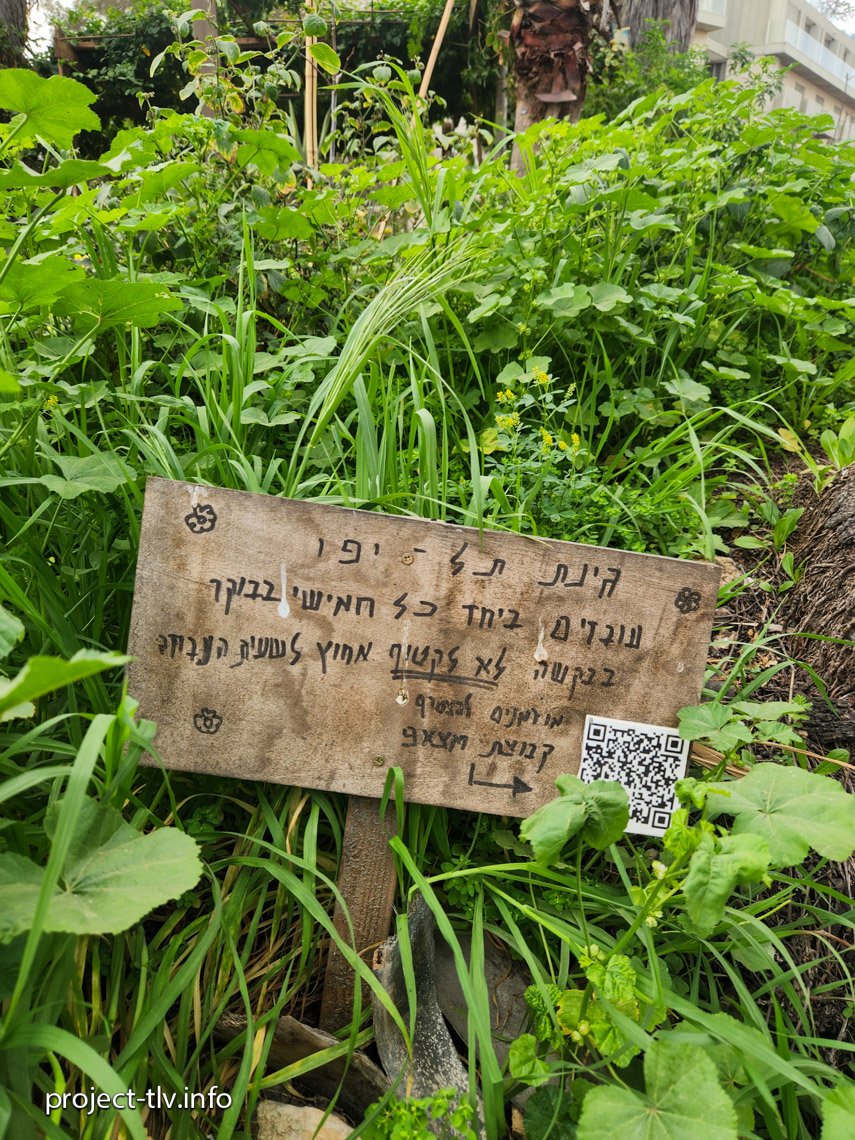 גינת תל - יפו
עובדים ביחד כל חמישי בבוקר
בבקשה לא לקטוף מחוץ לשעות העבודה
מוזמנים להצטרף
קבוצת ווצאפ
project-tlv.info